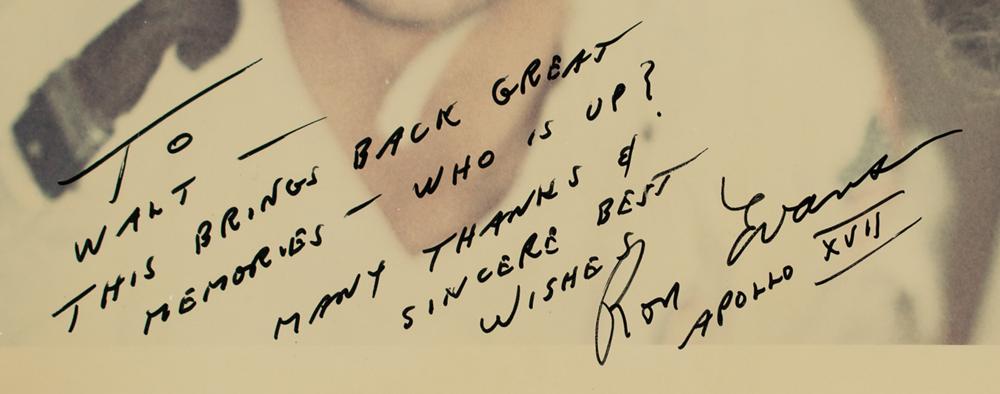 TO
WALT —
THIS BRINGS BACK GREAT
MEMORIES — WHO IS UP?
MANY THANKS &
SINCERE BEST
WISHES
Ron Evans
APOLLO XVII